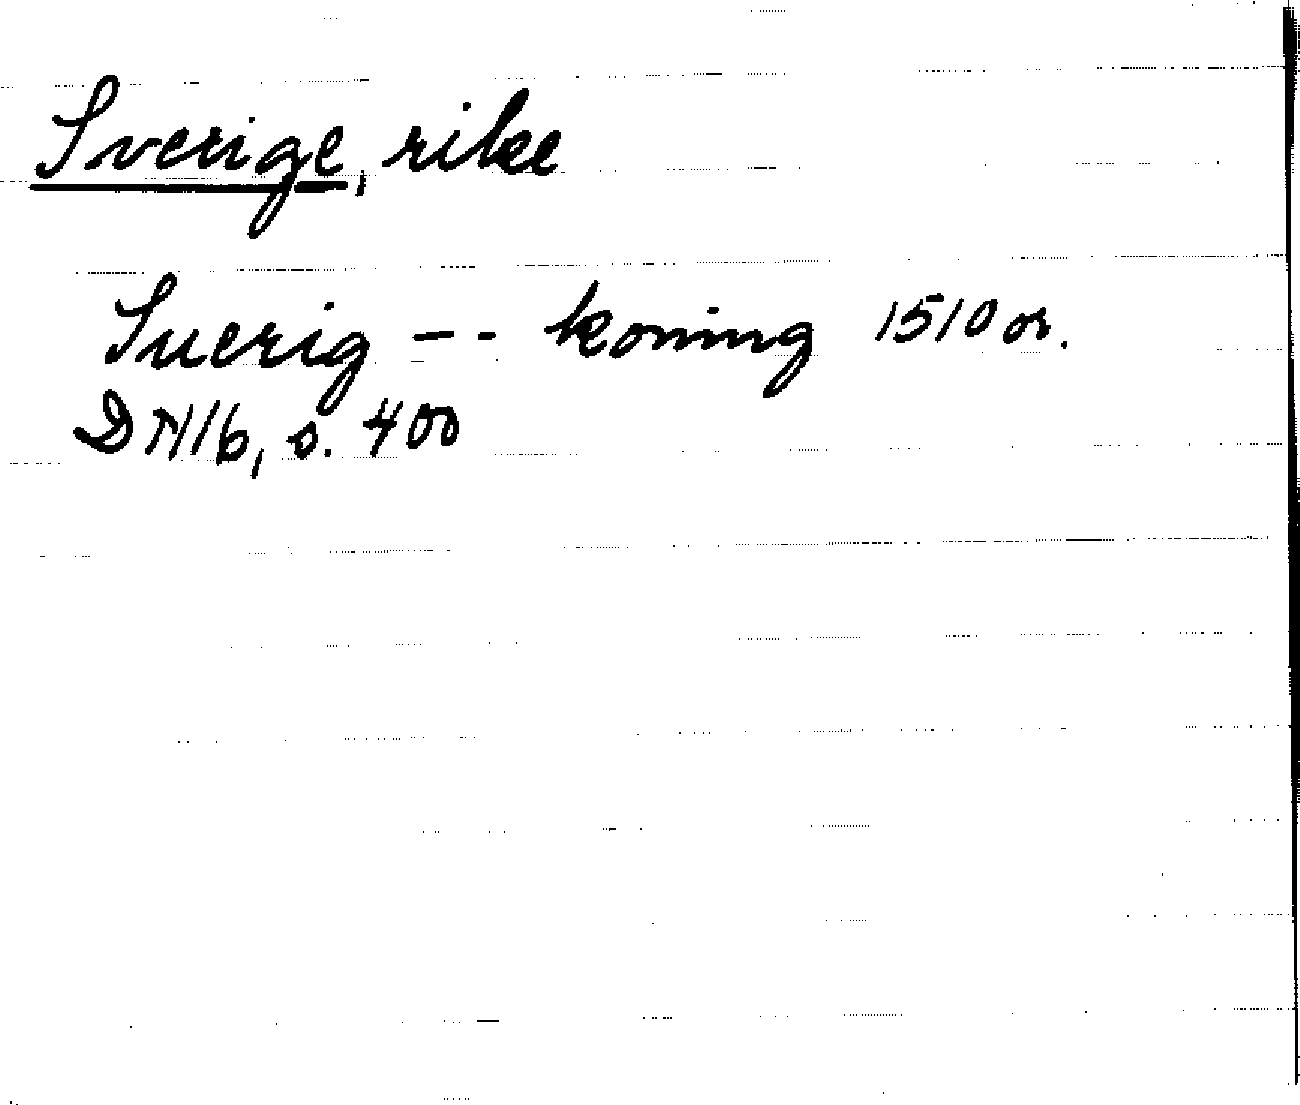 Sverige, rike
Suerig -- koning 1510 or.
DN16, s. 400